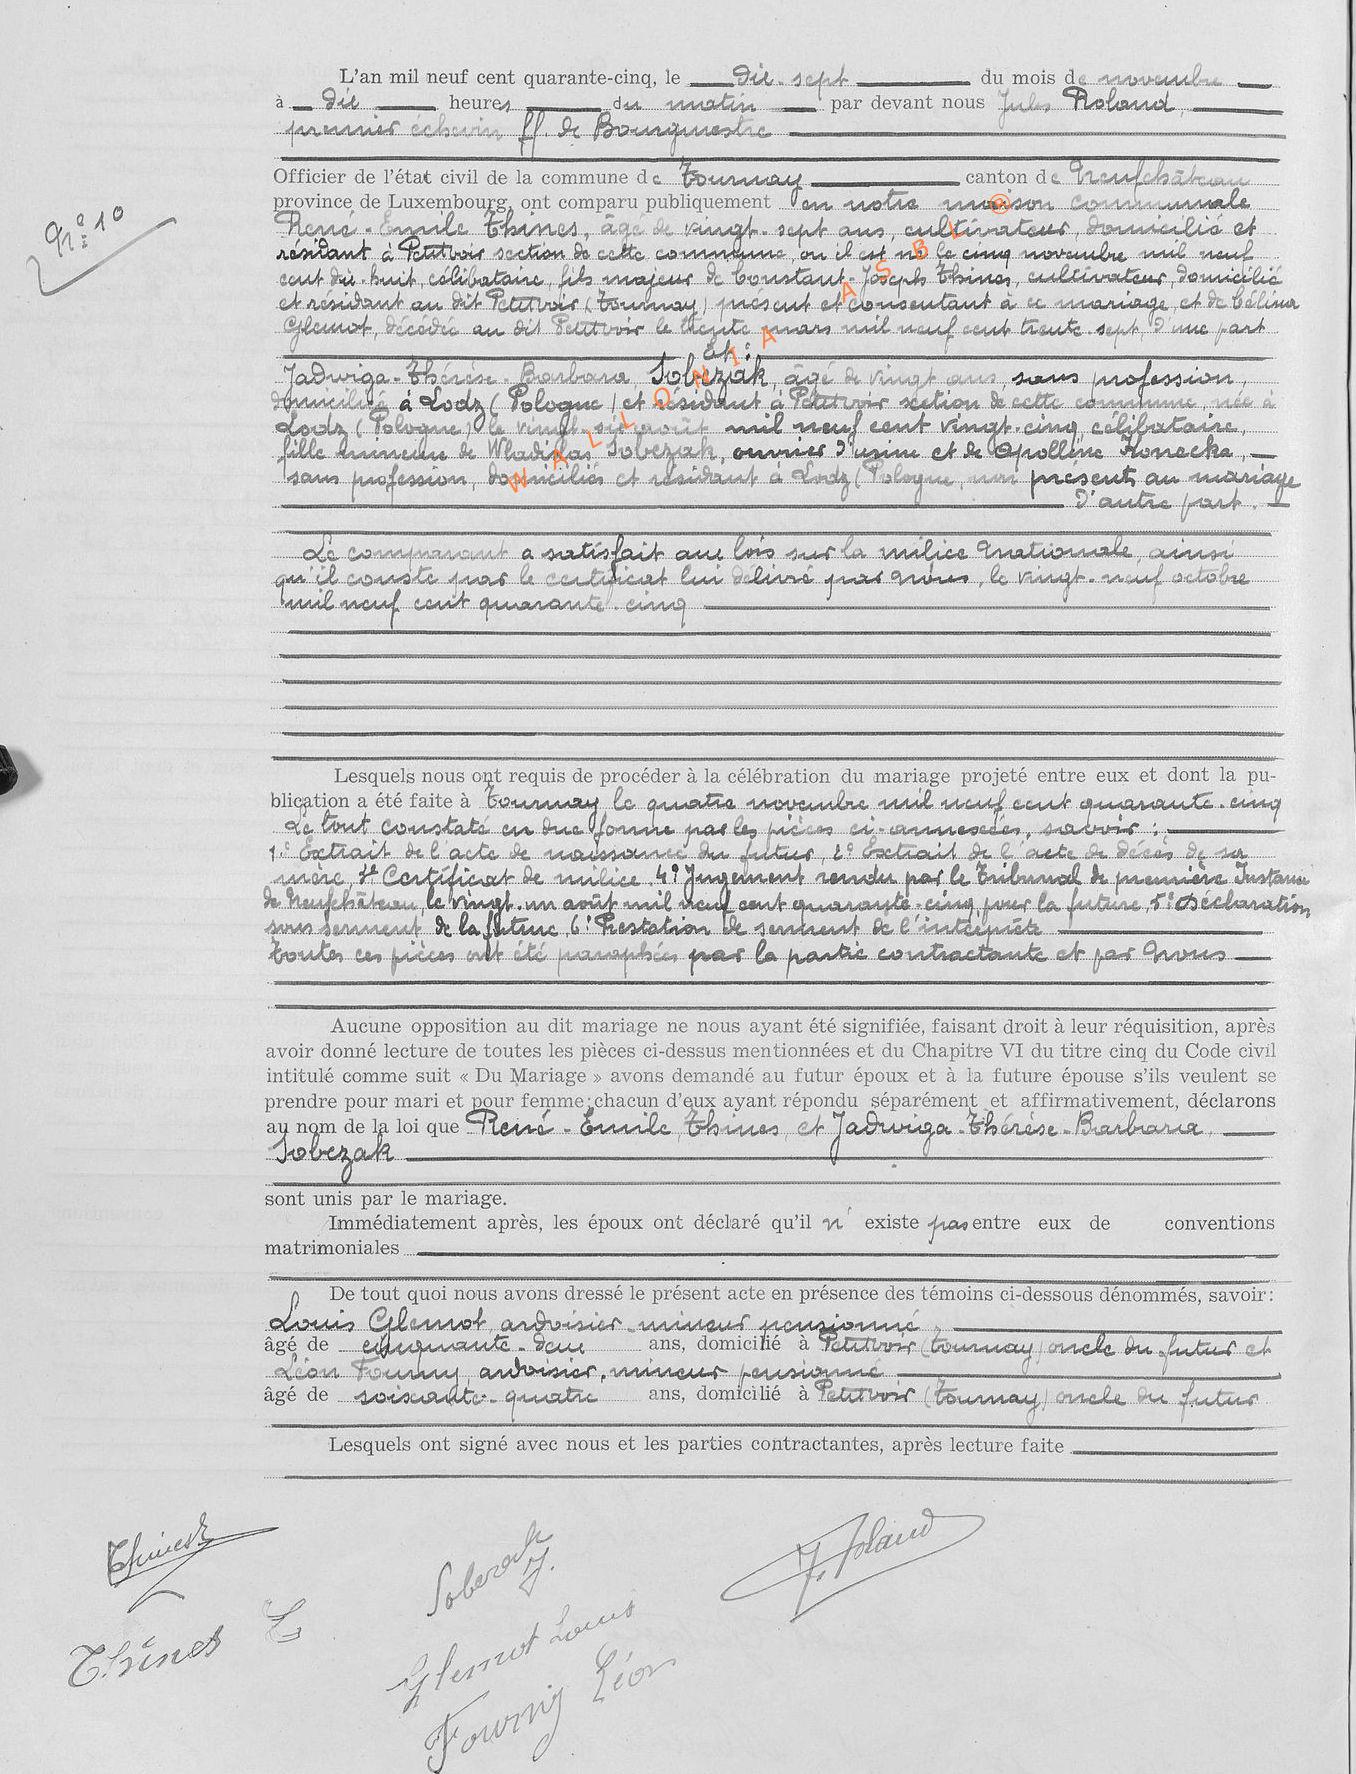 N° 10
L'an mil neuf cent quarante-cinq, le dix-sept du mois de novembre
à dix heures du matin par devant nous Jules Roland,
premier échevin ff de Bourgmestre
Officier de l'état civil de la commune de Tournay canton de Neufchâteau
province de Luxembourg, ont comparu publiquement en notre maison communale
René-Emile Thines, âgé de vingt-sept ans, cultivateur, domicilié et
résidant à Petitvoir section de cette commune, où il est né le cinq novembre mil neuf
cent dix-huit, célibataire, fils majeur de Constant-Joseph Thines, cultivateur, domicilié
et résidant au dit Petitvoir (Tournay) présent et consentant à ce mariage, et de Célina
Glemot, décédée au dit Petitvoir le trente mars mil neuf cent trente-sept, d'une part
Et :
Jadwiga-Thérèse-Barbara Sobczak, âgé de vingt ans, sans profession,
domiciliée à Lodz (Pologne) et résidant à Petitvoir section de cette commune, née à
Lodz (Pologne) le vingt-six août mil neuf cent vingt-cinq, célibataire,
fille mineure de Wladislas Sobczak, ouvrier d'usine et de Apolline Konecka,
sans profession, domiciliés et résidant à Lodz (Pologne, non présents au mariage
d'autre part.
Le comparant a satisfait aux lois sur la milice nationale, ainsi
qu'il conste par le certificat lui délivré par nous, le vingt-neuf octobre
mil neuf cent quarante-cinq
Lesquels nous ont requis de procéder à la célébration du mariage projeté entre eux et dont la pu-
blication a été faite à Tournay le quatre novembre mil neuf cent quarante-cinq
Le tout constaté en due forme par les pièces ci-annexées, savoir :
1° Extrait de l'acte de naissance du futur, 2° Extrait de l'acte de décès de sa
mère, 3° Certificat de milice. 4° Jugement rendu par le Tribunal de première Instance
de Neufchâteau, le vingt-un août mil neuf cent quarante-cinq pour la future, 5° Déclaration
sous serment de la future 6° Prestation de serment de l'interprète
Toutes ces pièces ont été paraphées par la partie contractante et par nous
Aucune opposition au dit mariage ne nous ayant été signifiée, faisant droit à leur réquisition, après
avoir donné lecture de toutes les pièces ci-dessus mentionnées et du Chapitre VI du titre cinq du Code civil
intitulé comme suit « Du Mariage » avons demandé au futur époux et à la future épouse s'ils veulent se
prendre pour mari et pour femme; chacun d'eux ayant répondu séparément et affirmativement, déclarons
au nom de la loi que René-Emile Thines, et Jadwiga-Thérèse-Barbara,
Sobczak
sont unis par le mariage.
Immédiatement après, les époux ont déclaré qu'il n'existe pas entre eux de conventions
matrimoniales
De tout quoi nous avons dressé le présent acte en présence des témoins ci-dessous dénommés, savoir:
Louis Glemot, ardoisier-mineur pensionné,
âgé de cinquante-deux ans, domicilié à Petitvoir (Tournay) oncle du futur et
Léon Fourny, ardoisier-mineur pensionné
âgé de soixante-quatre ans, domicilié à Petitvoir (Tournay) oncle du futur
Lesquels ont signé avec nous et les parties contractantes, après lecture faite
Thines R
Sobczak J.
J. Roland
Thines C
Glemot Louis
Fourny Léon
WALLONIA ASBL ®